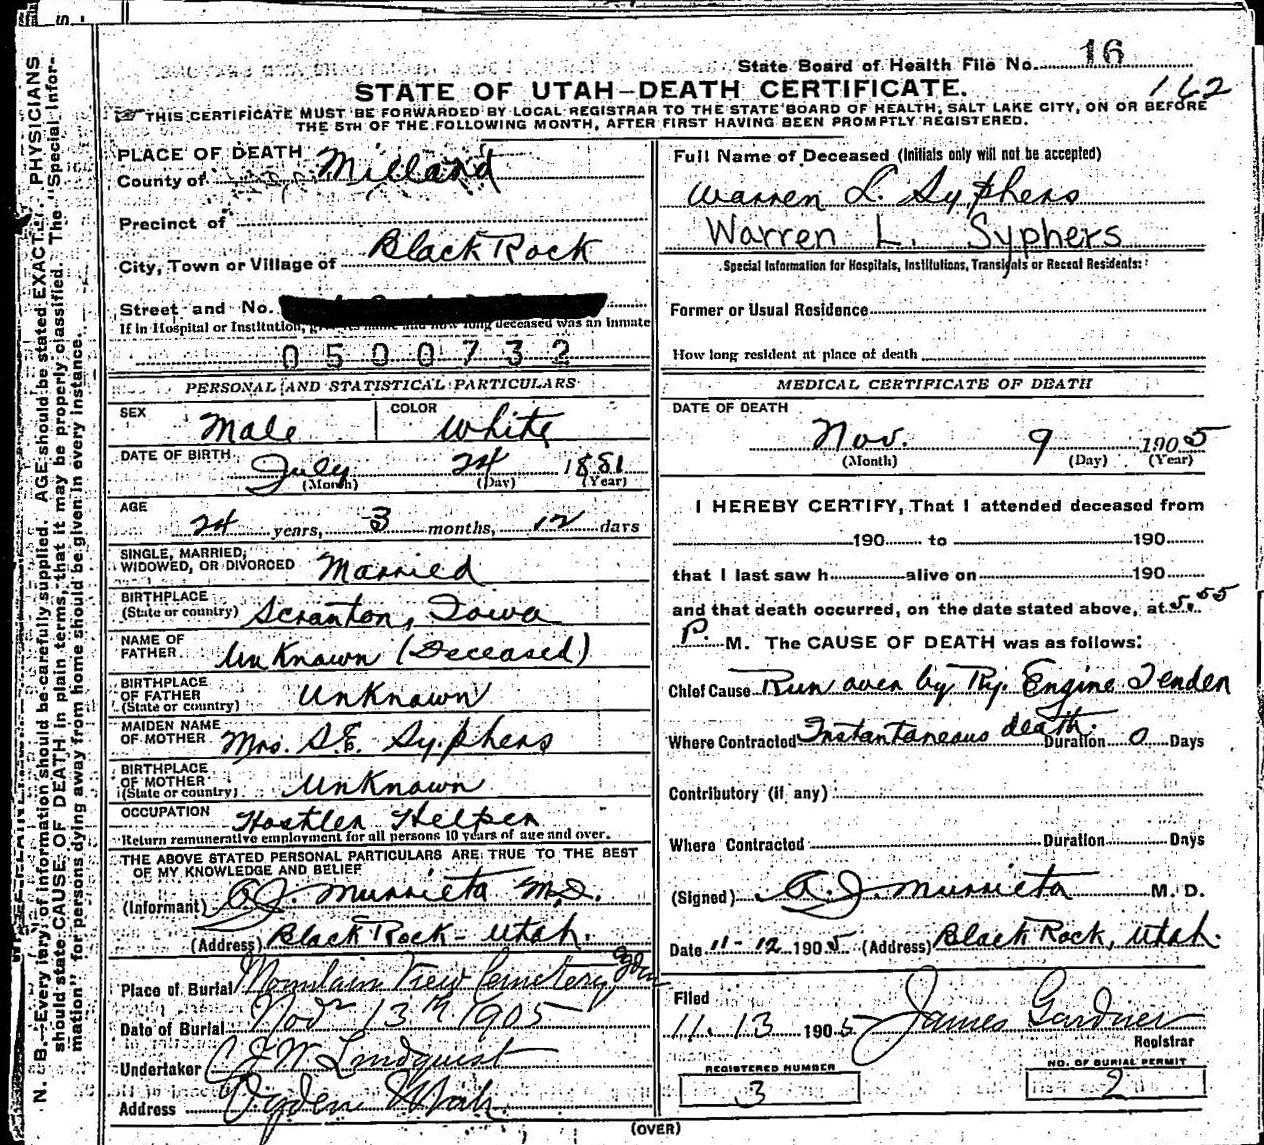 State Board of Health File No. 16
162
STATE OF UTAH—DEATH CERTIFICATE.
THIS CERTIFICATE MUST BE FORWARDED BY LOCAL REGISTRAR TO THE STATE BOARD OF HEALTH, SALT LAKE CITY, ON OR BEFORE
THE 5TH OF THE FOLLOWING MONTH, AFTER FIRST HAVING BEEN PROMPTLY REGISTERED.
PLACE OF DEATH
County of Millard
Precinct of
City, Town or Village of Black Rock
Street and No.
If in Hospital or Institution, give its name and how long deceased was an inmate
0500732
PERSONAL AND STATISTICAL PARTICULARS
SEX Male COLOR White
DATE OF BIRTH July 24 1881
(Month) (Day) (Year)
AGE 24 years, 3 months, 12 days
SINGLE, MARRIED,
WIDOWED, OR DIVORCED Married
BIRTHPLACE
(State or country) Scranton, Iowa
NAME OF
FATHER Unknown (Deceased)
BIRTHPLACE
OF FATHER
(State or country) Unknown
MAIDEN NAME
OF MOTHER Mrs. S.E. Syphers
BIRTHPLACE
OF MOTHER
(State or country) Unknown
OCCUPATION Hostler Helper
Return remunerative employment for all persons 10 years of age and over.
THE ABOVE STATED PERSONAL PARTICULARS ARE TRUE TO THE BEST
OF MY KNOWLEDGE AND BELIEF
(Informant) A.J. Murrieta M.D.
(Address) Black Rock - Utah.
Place of Burial Mountain View Cemetery, Ogden
Date of Burial Nov 13th 1905
Undertaker Lindquist
Address Ogden Utah
Full Name of Deceased (Initials only will not be accepted)
Warren L. Syphers
Warren L. Syphers
Special Information for Hospitals, Institutions, Transients or Recent Residents:
Former or Usual Residence
How long resident at place of death
MEDICAL CERTIFICATE OF DEATH
DATE OF DEATH
Nov. 9 1905
(Month) (Day) (Year)
I HEREBY CERTIFY, That I attended deceased from
190 to 190
that I last saw h alive on 190
and that death occurred, on the date stated above, at 5.55
P. M. The CAUSE OF DEATH was as follows:
Chief Cause Run over by Ry. Engine Tender
Instantaneous death.
Where Contracted Duration 0 Days
Contributory (if any)
Where Contracted Duration Days
(Signed) A.J. Murrieta M. D.
Date 11-12 1905 (Address) Black Rock, Utah.
Filed
11.13 1905 James Gardner
Registrar
REGISTERED NUMBER
3
NO. OF BURIAL PERMIT
2
(OVER)
N. B.—Every item of information should be carefully supplied. AGE should be stated EXACTLY. PHYSICIANS
should state CAUSE OF DEATH in plain terms, that it may be properly classified. The "Special Infor-
mation" for persons dying away from home should be given in every instance.